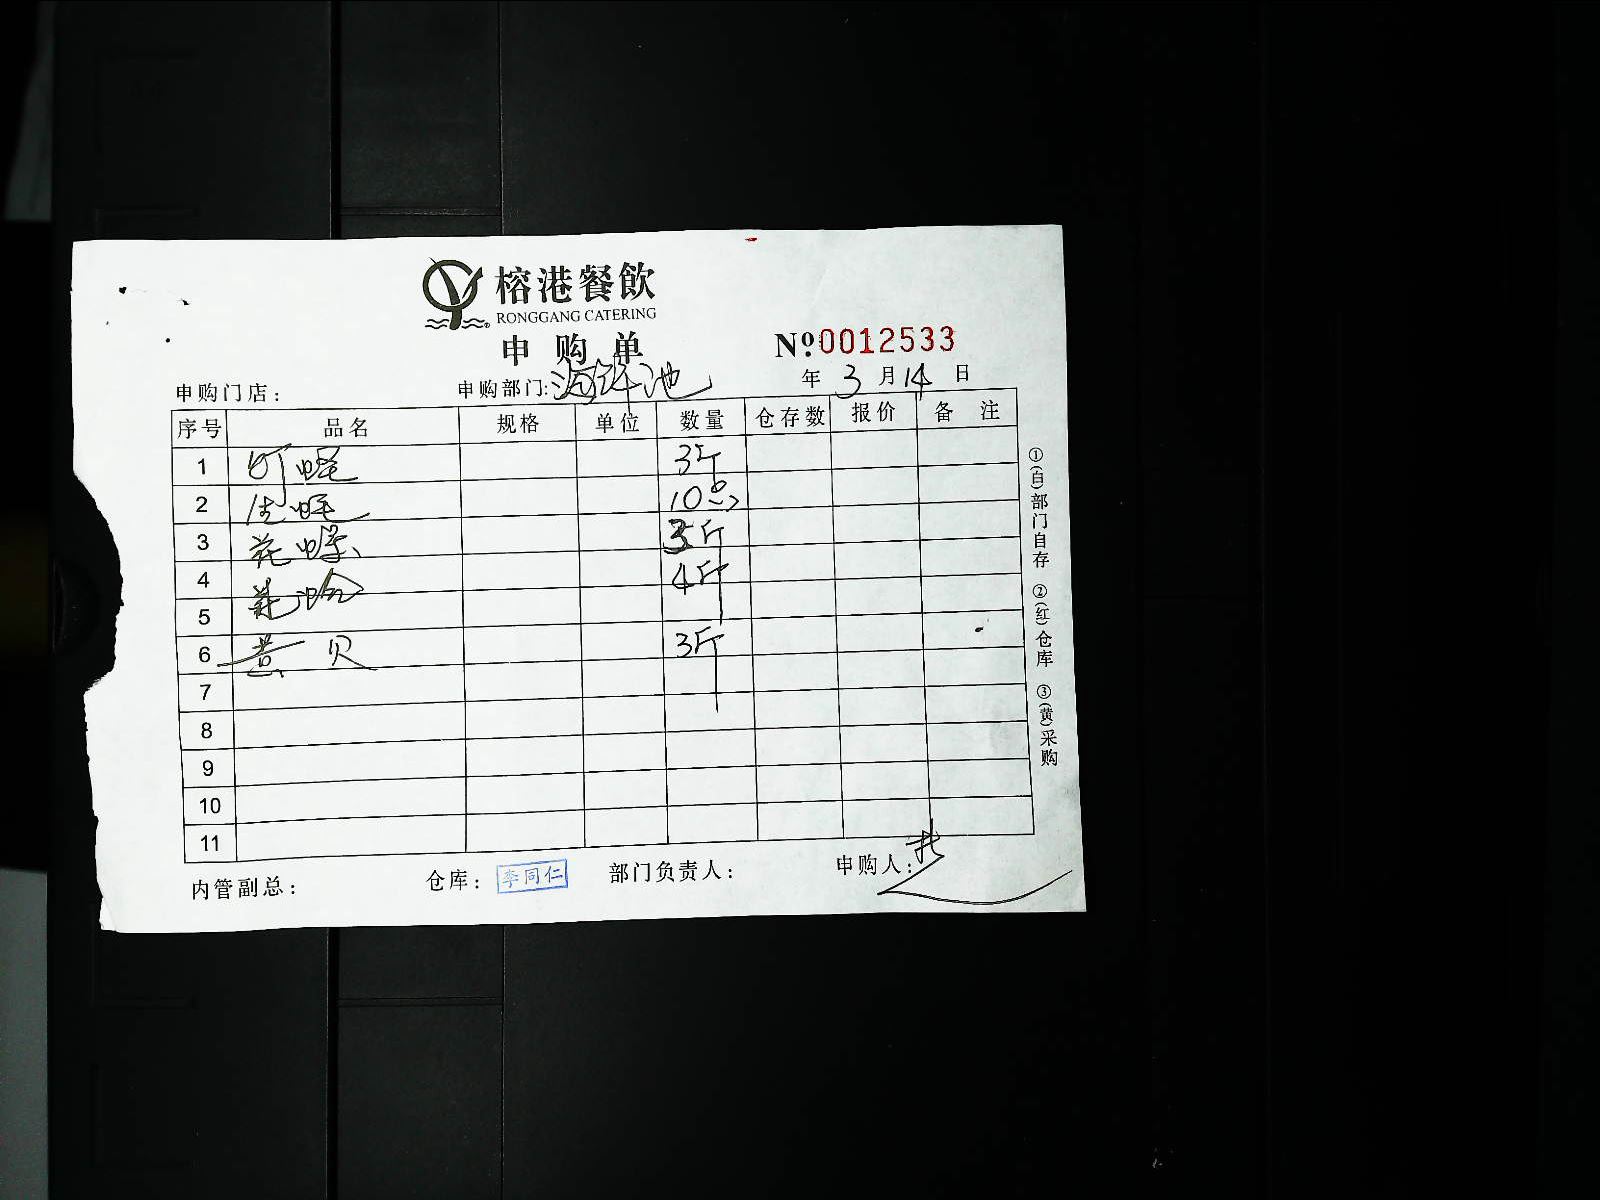 榕港餐飲
RONGGANG CATERING
申购单
Nº0012533
申购门店: 申购部门:海鲜池 年3月14日
序号 品名 规格 单位 数量 仓存数 报价 备注
1 3斤
2 生蚝 10只
3 花螺 3斤
4 花蛤 4斤
5
6 黄贝 3斤
7
8
9
10
11
内管副总: 仓库: 李同仁 部门负责人: 申购人:
①(白)部门自存 ②(红)仓库 ③(黄)采购